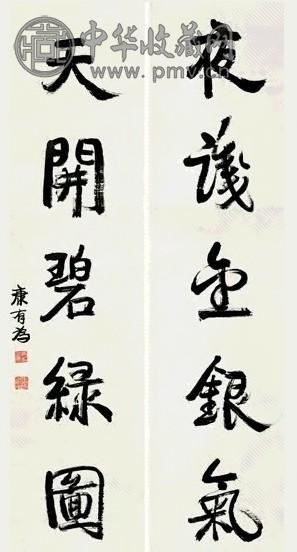 中华收藏网
www.pmv.cn
夜識金銀氣
天開碧綠圖
康有為